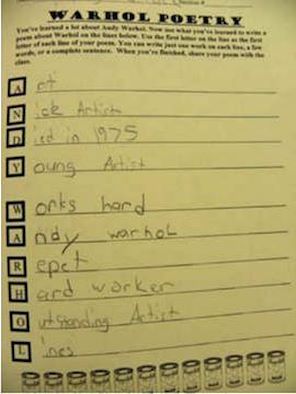 WARHOL POETRY
You've learned a lot about Andy Warhol. Now use what you've learned to write a
poem about Warhol on the lines below. Use the first letter on the line as the first
letter of each line of your poem. You can write just one work on each line, a few
words, or a complete sentence. When you're finished, share your poem with the
class.
A rt
N ick Artist
D ied in 1975
Y oung Artist
W orks hard
A ndy warhol
R epet
H ard worker
O utstanding Artist
L ines